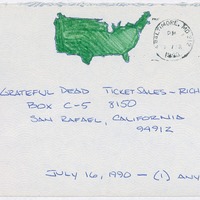 BALTIMORE, MD
PM
1990
GRATEFUL DEAD TICKET SALES - RICH
BOX C-5 8150
SAN RAFAEL, CALIFORNIA
94912
JULY 16, 1990 - (1) ANY